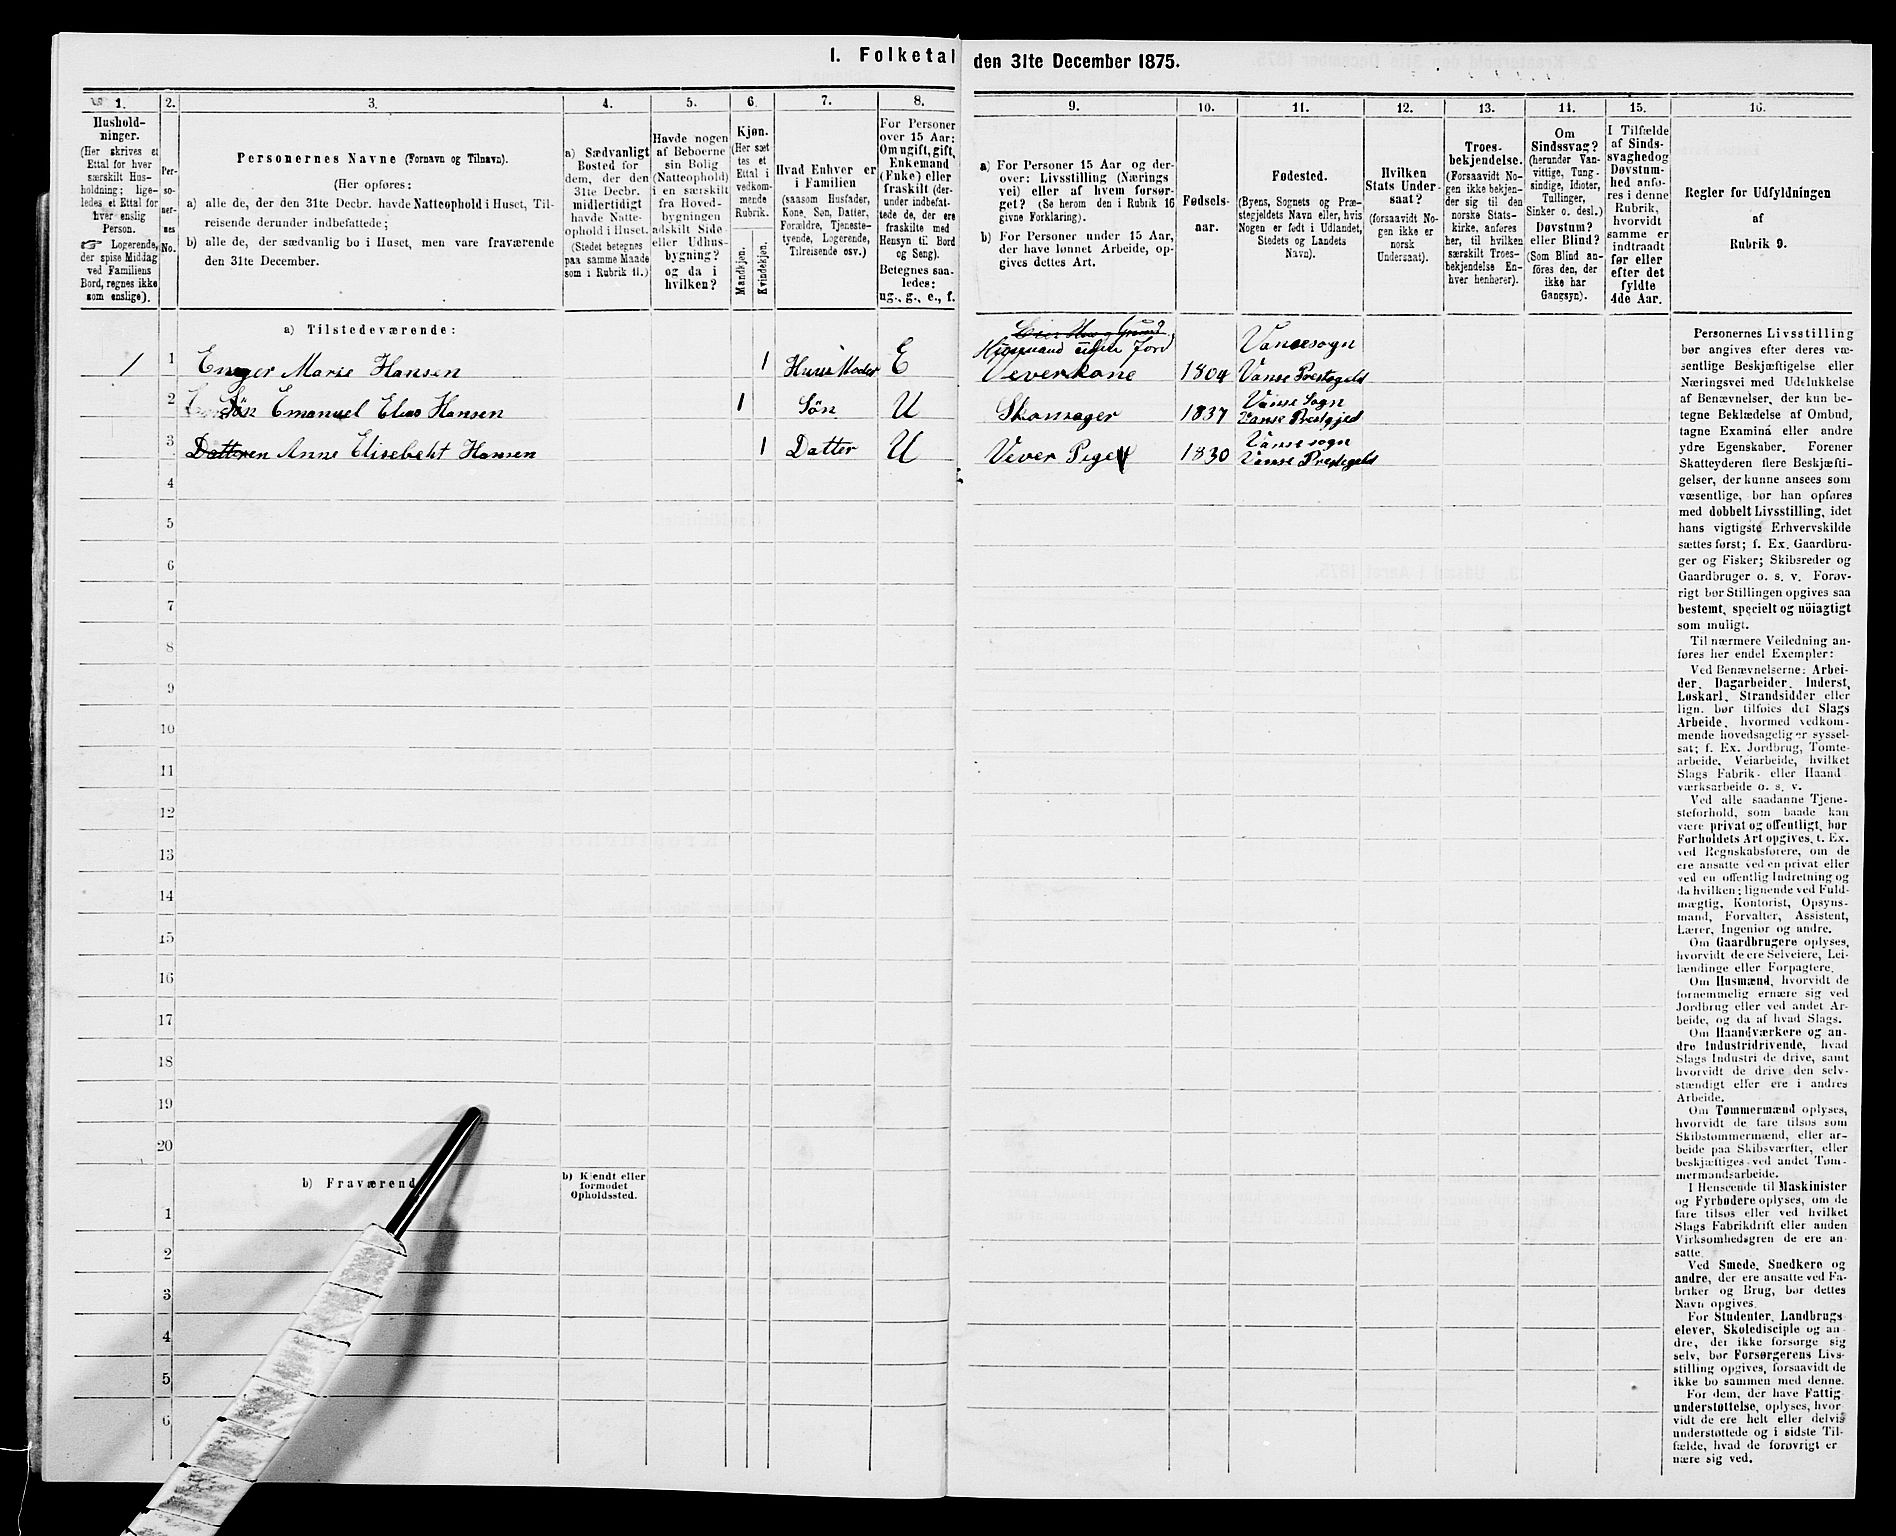 I. Folketal den 31te December 1875.
1.
2.
3.
4.
5.
6.
7.
8.
9.
10.
11.
12.
13.
14.
15.
16.
Hushold-
ninger.
(Her skrives et
Ettal for hver
særskilt Hus-
holdning; lige-
ledes et Ettal for
hver enslig
Person.
☞ Logerende,
der spise Middag
ved Familiens
Bord, regnes ikke
som enslige).
Per-
so-
ner-
nes
No.
Personernes Navne (Fornavn og Tilnavn).
(Her opføres:
a) alle de, der den 31te Decbr. havde Natteophold i Huset, Til-
reisende derunder indbefattede;
b) alle de, der sædvanlig bo i Huset, men vare fraværende
den 31te December.
a) Sædvanligt
Bosted for
dem, der den
31te Decbr.
midlertidigt
havde Natte-
ophold i Huset.
(Stedet betegnes
paa samme Maade
som i Rubrik 11.)
Havde nogen
af Beboerne
sin Bolig
(Natteophold)
i en særskilt
fra Hoved-
bygningen
adskilt Side-
eller Udhus-
bygning?
og da i
hvilken?
Kjøn.
(Her sæt
tes et
Ettal i
vedkom-
mende
Rubrik.
Mandkjøn.
Kvindekjøn.
Hvad Enhver er
i Familien
(saasom Husfader,
Kone, Søn, Datter,
Forældre, Tjeneste-
tyende, Logerende,
Tilreisende osv.)
For Personer
over 15 Aar:
Om ugift, gift,
Enkemand
(Enke) eller
fraskilt (der-
under indbefat-
tede de, der ere
fraskilte med
Hensyn til Bord
og Seng).
Betegnes saa-
ledes:
ug., g., e., f.
a) For Personer 15 Aar og der-
over: Livsstilling (Nærings
vei) eller af hvem forsør-
get? (Se herom den i Rubrik 16
givne Forklaring).
b) For Personer under 15 Aar,
der have lønnet Arbeide, op-
gives dettes Art.
Fødsels-
aar.
Fødested.
(Byens, Sognets og Præ-
stegjeldets Navn eller, hvis
Nogen er født i Udlandet,
Stedets og Landets
Navn).
Hvilken
Stats Under-
saat?
(forsaavidt No-
gen ikke er
norsk
Undersaat).
Troes-
bekjendelse.
(Forsaavidt No-
gen ikke bekjen-
der sig til den
norske Stats-
kirke, anføres
her, til hvilken
særskilt Troes-
bekjendelse En-
hver henhører).
Om
Sindssvag?
(herunder Van-
vittige, Tung-
sindige, Idioter,
Tullinger,
Sinker o. desl.)
Døvstum?
eller Blind?
(Som Blind an-
føres den, der
ikke har
Gangsyn).
I Tilfælde
af Sinds-
svaghed og
Døvstum-
hed anfø-
res i denne
Rubrik,
hvorvidt
samme er
indtraadt
før eller
efter det
fyldte
4de Aar.
Regler for Udfyldningen
af
Rubrik 9.
a) Tilstedeværende:
Huusmand uden Jord
Vansesogn
1 1 Enger Marie Hansen 1 Huus Moder E Veverkone 1804 Vanse Prestegeld
Vanse Sogn
2 Søn Emanuel Elias Hansen 1 Søn U Skomager 1837 Vanse Prestgjed
Vanse sogn
3 Datteren Anne Elisebeht Hansen 1 Datter U Vever Pige 1830 Vanse Prestegeld
4
5
6
7
8
9
10
11
12
13
14
15
16
17
18
19
20
b) Fraværend
b) Kjendt eller
formodet
Opholdssted.
1
2
3
4
5
6
Personernes Livsstilling
bør angives efter deres væ-
sentlige Beskjæftigelse eller
Næringsvei med Udelukkelse
af Benævnelser, der kun be-
tegne Beklædelse af Ombud,
tagne Examina eller andre
ydre Egenskaber. Forener
Skatteyderen flere Beskjæfti-
gelser, der kunne ansees som
væsentlige, bør han opføres
med dobbelt Livsstilling, idet
hans vigtigste Erhvervskilde
sættes først; f. Ex. Gaardbru-
ger og Fisker; Skibsreder og
Gaardbruger o. s. v. Forøv-
rigt bør Stillingen opgives saa
bestemt, specielt og nöiagtigt
som muligt.
Til nærmere Veiledning an-
føres her endel Exempler:
Ved Benævnelserne: Arbei-
der, Dagarbeider, Inderst,
Løskarl, Strandsidder eller
lign. bør tilføies det Slags
Arbeide, hvormed vedkom-
mende hovedsagelig er syssel-
sat; f. Ex. Jordbrug, Tomte-
arbeide, Veiarbeide, hvilket
Slags Fabrik- eller Haand
værksarbeide o. s. v.
Ved alle saadanne Tjene-
steforhold, som baade kan
være privat og offentligt, bør
Forholdets Art opgives, t. Ex.
ved Regnskabsførere, om de
ere ansatte ved en privat eller
ved en offentlig Indretning og
da hvilken; lignende ved Fuld-
mægtig, Kontorist, Opsyns-
mand, Forvalter, Assistent,
Lærer, Ingeniør og andre.
Om Gaardbrugere oplyses,
hvorvidt de ere Selveiere, Lei-
lændinge eller Forpagtere.
Om Husmænd, hvorvidt de
fornemmelig ernære sig ved
Jordbrug eller ved andet Ar-
beide, og da af hvad Slags.
Om Haandværkere og an-
dre Industridrivende, hvad
Slags Industri de drive, samt
hvorvidt de drive den selv-
stændigt eller ere i andres
Arbeide.
Om Tømmermænd oplyses,
hvorvidt de fare tilsøs som
Skibstømmermænd, eller ar-
beide paa Skibsværfter, eller
beskjæftiges ved andet Tøm-
mermandsarbeide.
I Henseende til Maskinister
og Fyrbødere oplyses, om de
fare tilsøs eller ved hvilket
Slags Fabrikdrift eller anden
Virksomhedsgren de ere an-
satte.
Ved Smede, Snedkere og
andre, der ere ansatte ved Fa-
briker og Brug, bør dettes
Navn opgives.
For Studenter, Landbrugs
elever, Skoledisciple og an-
dre, der ikke forsørge sig
selv, bør Forsørgerens Livs-
stilling opgives, forsaavidt de
ikke bo sammen med denne.
For dem, der have Fattig
understøttelse, oplyses, hvor-
vidt de ere helt eller delvis
understøttede og i sidste Til-
fælde, hvad de forøvrigt er
nære sig ved.